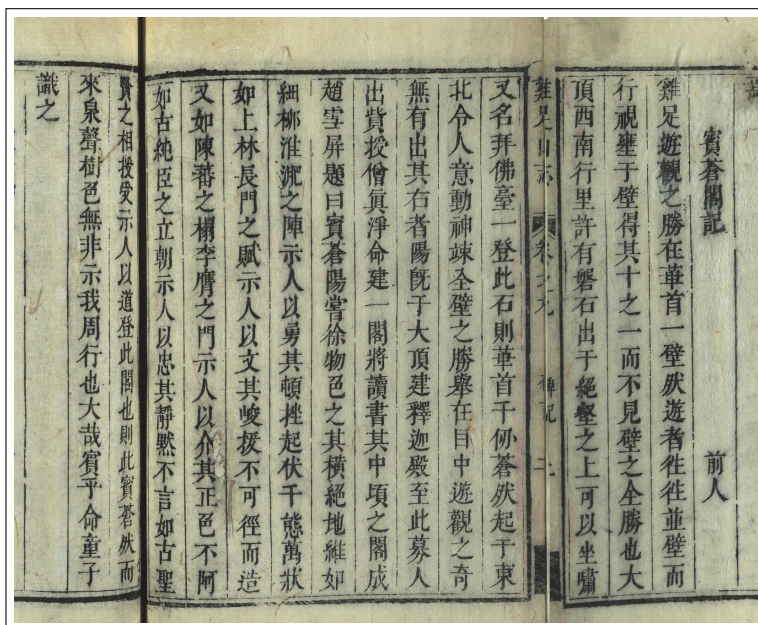 賓蒼閣記 前人
雞足遊觀之勝在華首一壁然遊者徃徃並壁而
行視壅于壁得其十之一而不見壁之全勝也大
頂西南行里許有磐石出于絕壑之上可以坐嘯
雞足山志 卷之九 碑記 二
又名拜佛臺一登此石則華首千仞蒼然起于東
北令人意動神竦全壁之勝舉在目中遊觀之奇
無有出其右者陽旣于大頂建釋迦殿至此募人
出貲授僧眞淨命建一閣將讀書其中頃之閣成
趙雪屏題曰賓蒼陽嘗徐物色之其橫絕地維如
細柳淮淝之陣示人以勇其頓挫起伏千態萬狀
如上林長門之賦示人以文其峻拔不可徑而造
又如陳蕃之榻李膺之門示人以介其正色不阿
如古純臣之立朝示人以忠其靜默不言如古聖
賢之相授受示人以道登此閣也則此賓蒼然而
來泉聲樹色無非示我周行也大哉賓乎命童子
識之